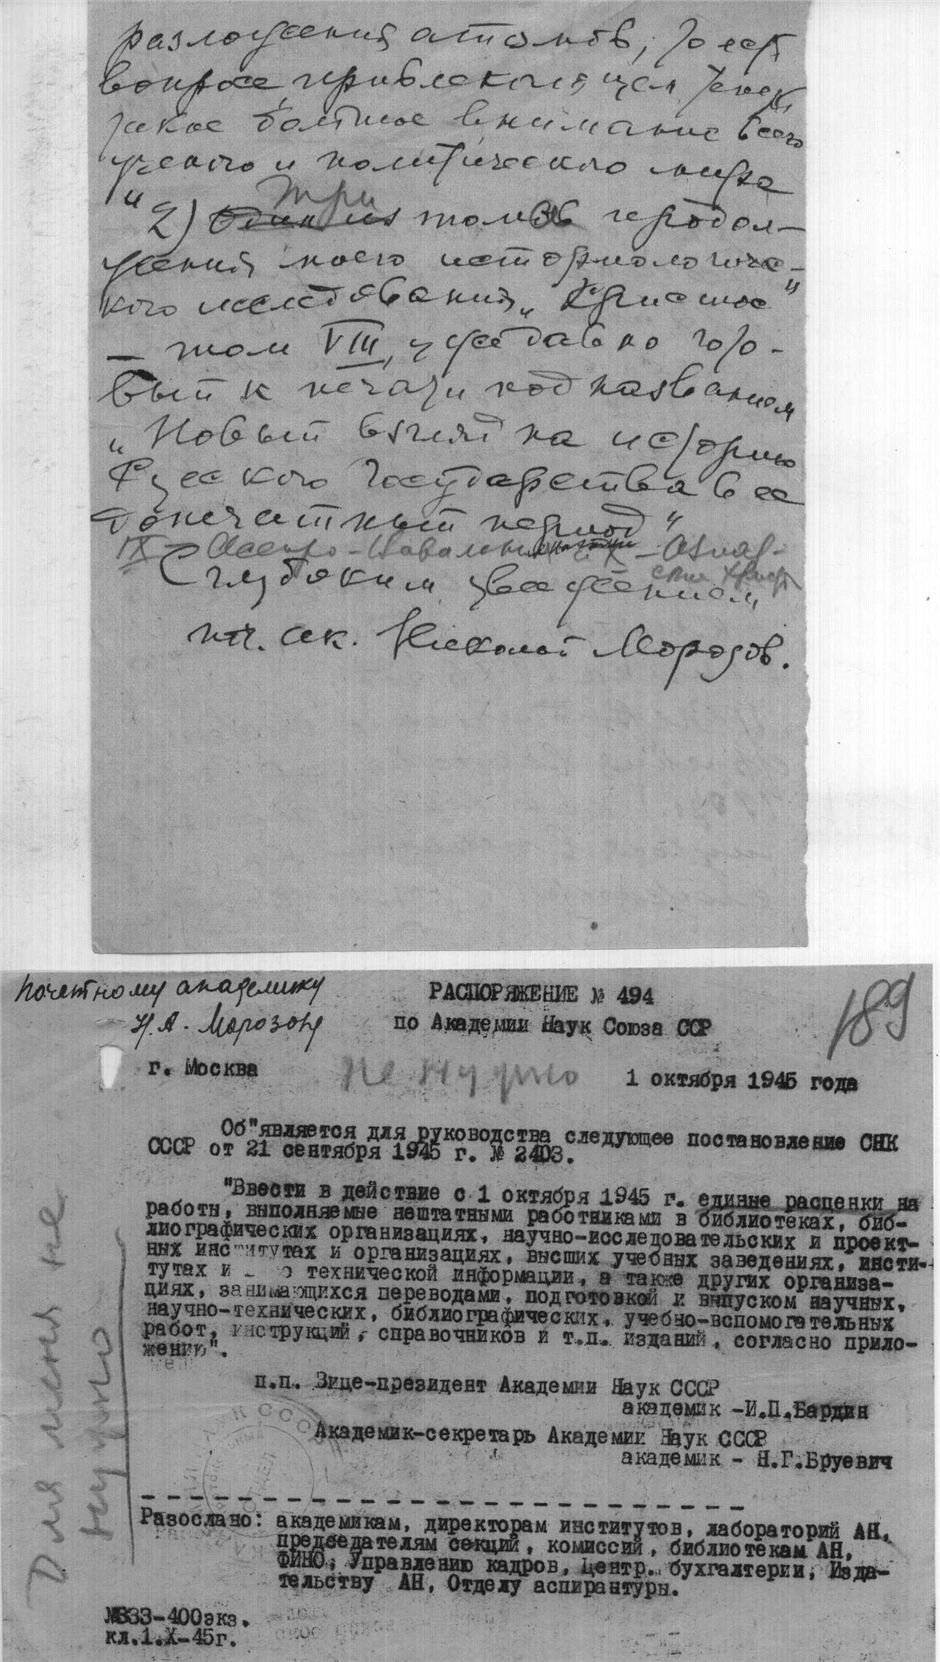 разложения атомов, то есть
вопросе, привлекающем теперь
такое большое внимание всего
ученого и политического мира
" 2) Три томов продол-
жения моего историологиче-
кого исследования „Христос"
— том VIII, уже давно гото-
вый к печати под названием
„Новый взгляд на историю
Русского Государства в ее
допечатный период"
IX — Азиат-
ские Христы
С глубоким уважением
поч. ак. Николай Морозов.
Почетному академику
Н.А. Морозову
189
РАСПОРЯЖЕНИЕ № 494
по Академии Наук Союза ССР
г. Москва
не нужно
1 октября 1945 года
Об"является для руководства следующее постановление СНК
СССР от 21 сентября 1945 г. № 2403.
"Ввести в действие с 1 октября 1945 г. единые расценки на
работы, выполняемые нештатными работниками в библиотеках, биб-
лиографических организациях, научно-исследовательских и проект-
ных институтах и организациях, высших учебных заведениях, инсти-
тутах и технической информации, а также других организа-
циях, занимающихся переводами, подготовкой и выпуском научных,
научно-технических, библиографических, учебно-вспомогательных
работ, инструкций, справочников и т.п. изданий, согласно прило-
жению".
п.п. Вице-президент Академии Наук СССР
академик -И.П.Бардин
Академик-секретарь Академии Наук СССР
академик - Н.Г.Бруевич
Разослано: академикам, директорам институтов, лабораторий АН,
председателям секций, комиссий, библиотекам АН,
ФИНО, Управлению кадров, Центр. бухгалтерии, Изда-
тельству АН, Отделу аспирантуры.
№333-400экз.
кл.1.X-45г.
Для меня не
нужно